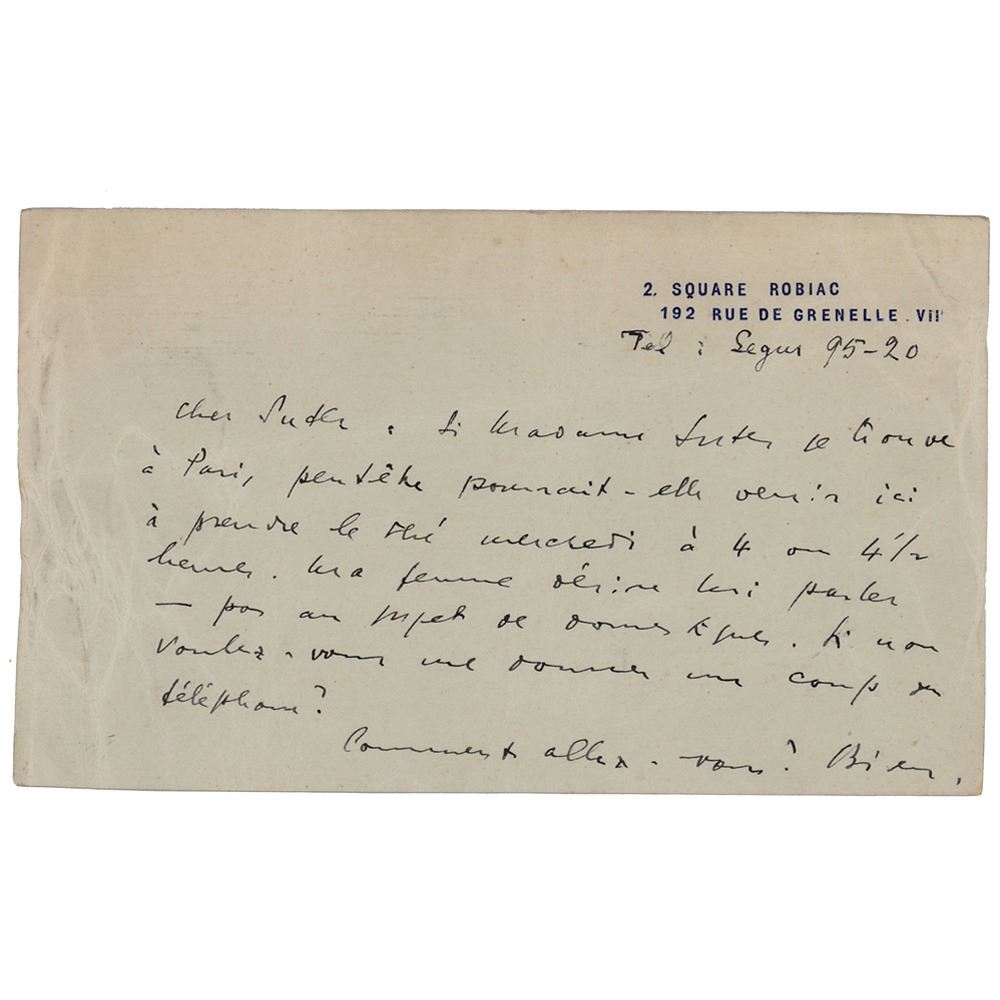 2. SQUARE ROBIAC
192 RUE DE GRENELLE. VIIe
Tel : Segur 95-20
Cher Suter : Si Madame Suter se trouve
à Paris, peut-être pourrait-elle venir ici
à prendre le thé mercredi à 4 ou 4 1/2
heures. Ma femme désire lui parler
— pas au sujet de domestiques. Si non
voulez-vous me donner un coup de
téléphone?
Comment allez-vous? Bien,